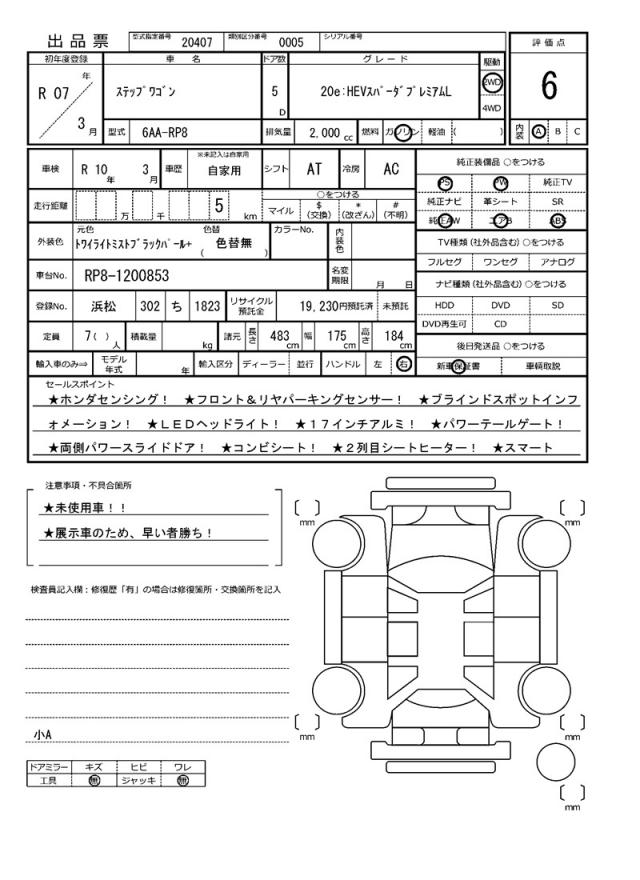 出品票 型式指定番号 20407 類別区分番号 0005 シリアル番号
評価点
6
内装 A B C
初年度登録 車名 ドア数 グレード 駆動
R 07 年 3 月
ステップワゴン 5 D 20e:HEVスパーダプレミアムL 2WD 4WD
型式 6AA-RP8 排気量 2,000 cc 燃料 ガソリン 軽油 ( )
車検 R 10 年 3 月 車歴 ※未記入は自家用 自家用 シフト AT 冷房 AC
走行距離 万 千 5 km ○をつける マイル $(交換) *(改ざん) #(不明)
外装色 元色 トワイライトミストブラックパール+ 色替 ( 色替無 ) カラーNo. 内装色
車台No. RP8-1200853 名変期限 月 日
登録No. 浜松 302 ち 1823 リサイクル預託金 19,230円預託済 未預託
定員 7( )人 積載量 kg 諸元 長さ 483cm 幅 175cm 高さ 184cm
輸入車のみ⇒ モデル年式 年 輸入区分 ディーラー 並行 ハンドル 左 右
純正装備品 ○をつける
PS PW 純正TV
純正ナビ 革シート SR
純正AW エアB ABS
TV種類(社外品含む)○をつける
フルセグ ワンセグ アナログ
ナビ種類(社外品含む)○をつける
HDD DVD SD
DVD再生可 CD
後日発送品 ○をつける
新車保証書 車輌取説
セールスポイント
★ホンダセンシング! ★フロント&リヤパーキングセンサー! ★ブラインドスポットインフ
ォメーション! ★LEDヘッドライト! ★17インチアルミ! ★パワーテールゲート!
★両側パワースライドドア! ★コンビシート! ★2列目シートヒーター! ★スマート
注意事項・不具合箇所
★未使用車!!
★展示車のため、早い者勝ち!
検査員記入欄:修復歴「有」の場合は修復箇所・交換箇所を記入
小A
ドアミラー キズ ヒビ ワレ
工具 無 ジャッキ 無
[ ] mm
[ ] mm
[ ] mm
[ ] mm
[ ] mm